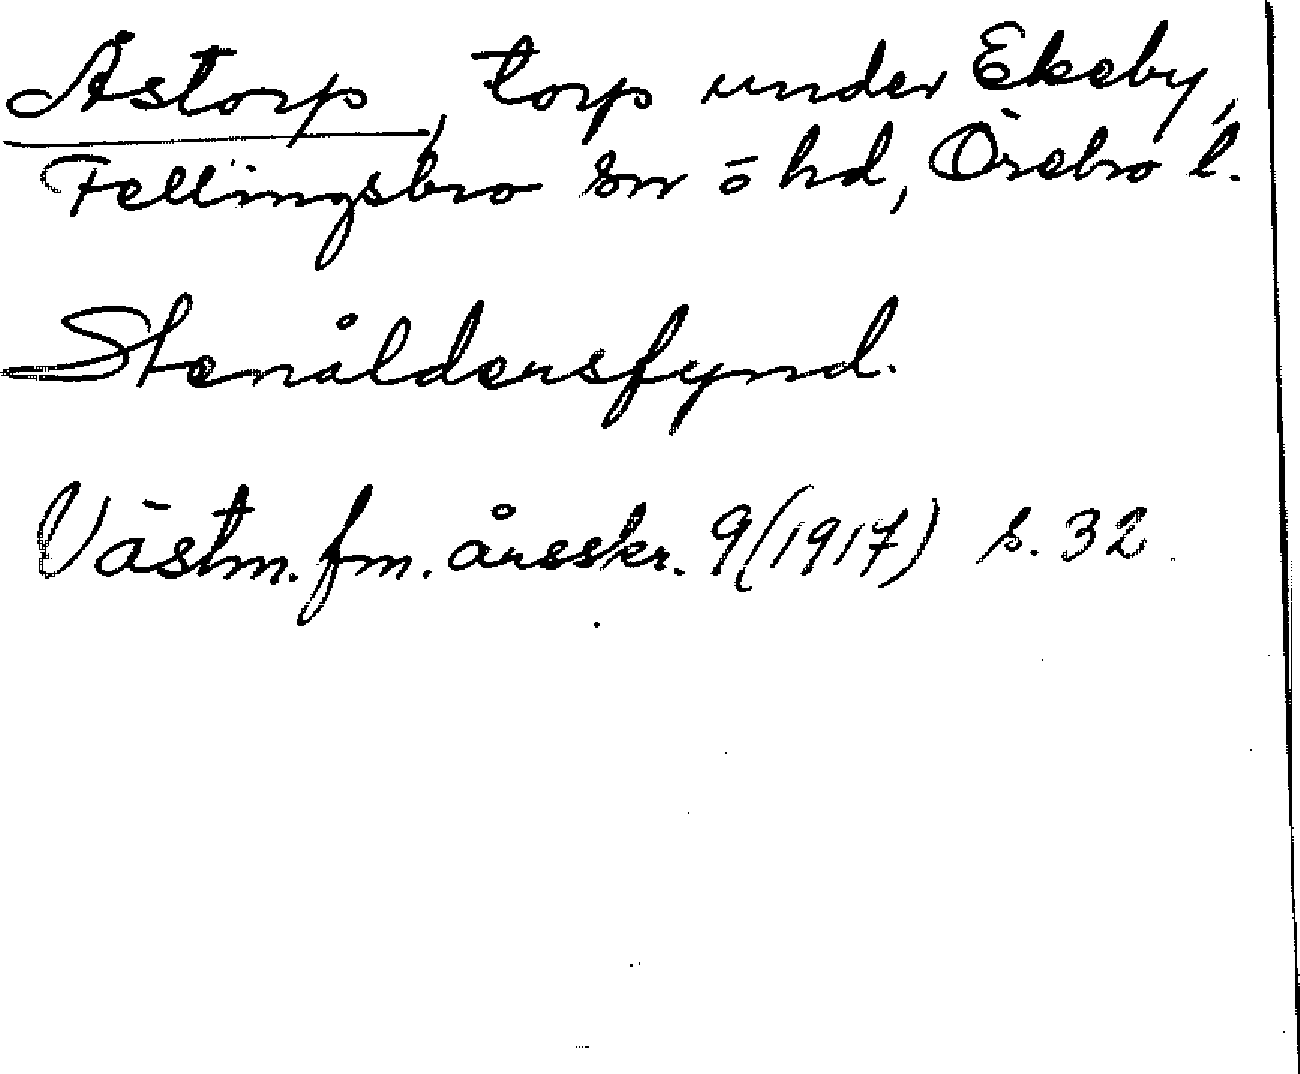 Åstorp, torp under Ekeby,
Fellingsbro sn o hd, Örebro l.
Stenåldersfynd.
Västm. fm. årsskr. 9(1917) s. 32